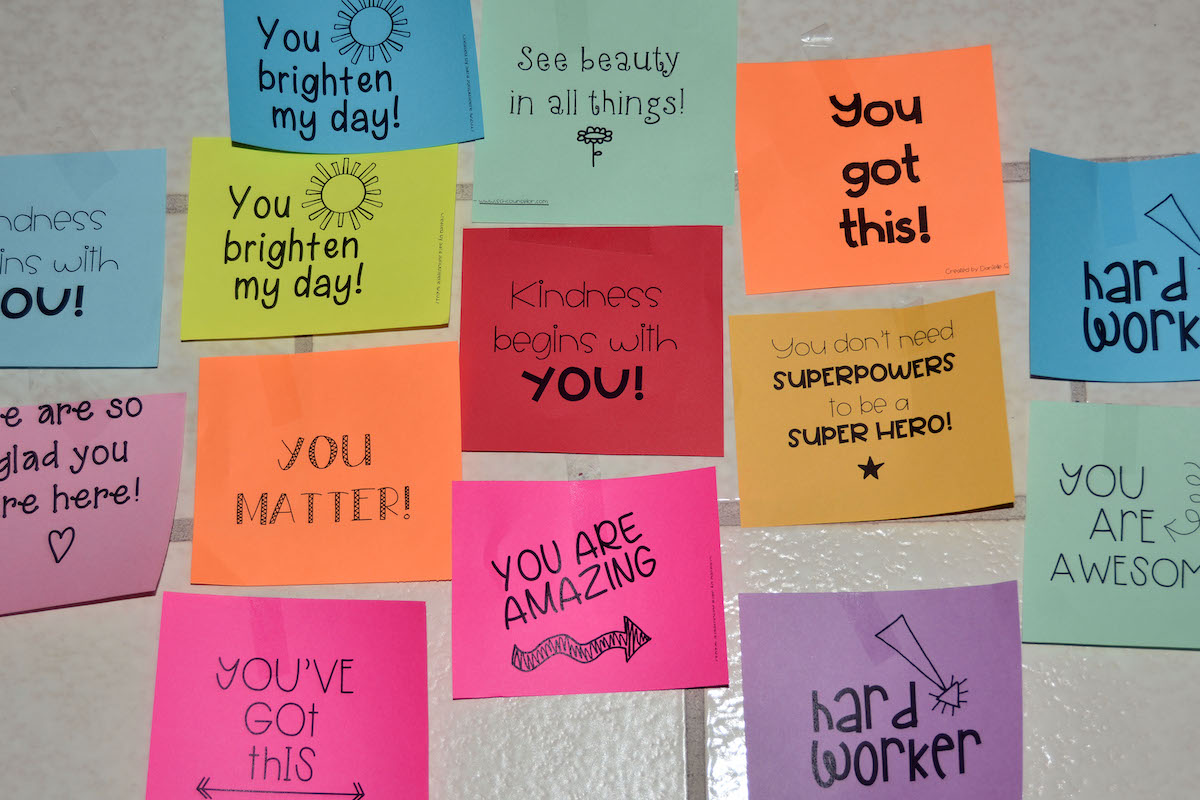 You
brighten
my day!
See beauty
in all things!
You
got
this!
Created by Danielle
ndness
ins with
OU!
You
brighten
my day!
Kindness
begins with
YOU!
hard
work
You don't need
SUPERPOWERS
to be a
SUPER HERO!
e are so
glad you
re here!
YOU
MATTER!
YOU ARE
AMAZING
YOU
ARE
AWESOM
YOU'VE
GOt
thIS
hard
worker